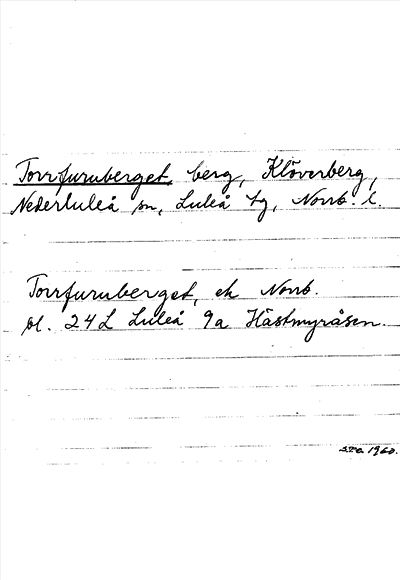 Torrfuruberget, berg, Klöverberg,
Nederluleå sn, Luleå tg, Norrb. l.
Torrfuruberget, ek Norrb.
bl. 24L Luleå 9a Hästmyråsen.
1960.